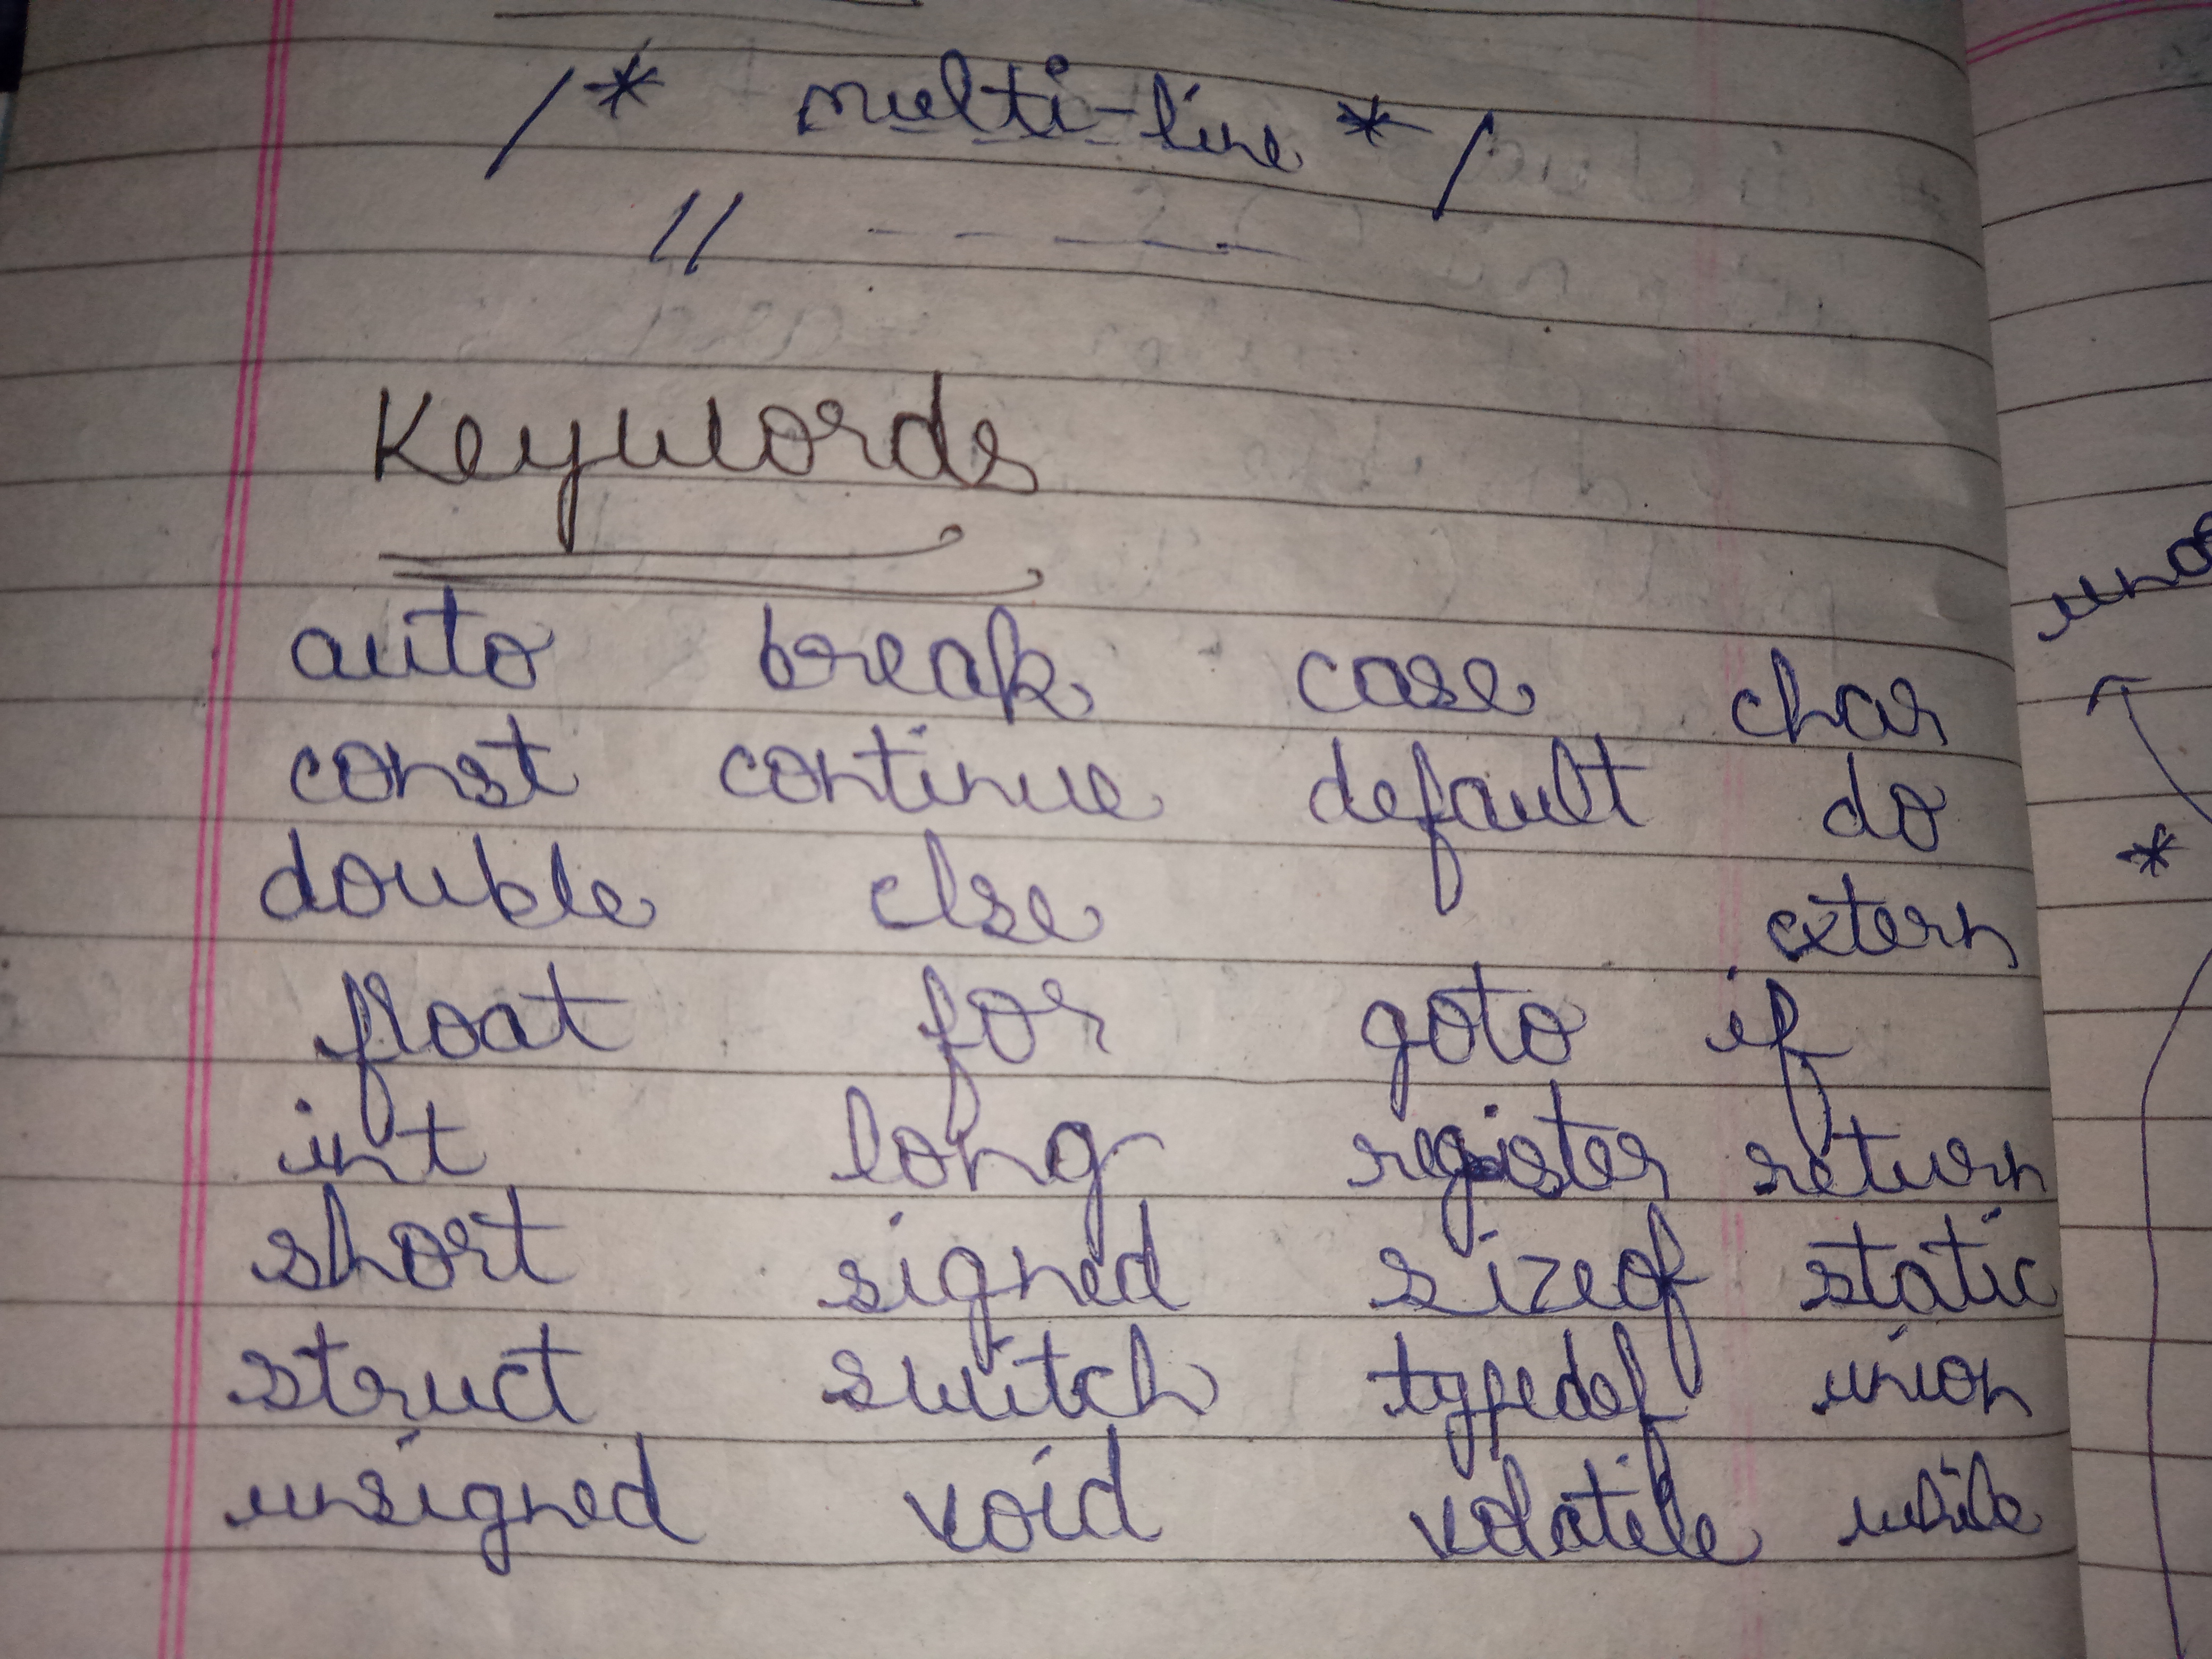 /* multi-line */
// - - - - -
Keywords
auto break case char
const continue default do
double else extern
float for goto if
int long register return
short signed sizeof static
struct switch typedef union
unsigned void volatile while
*